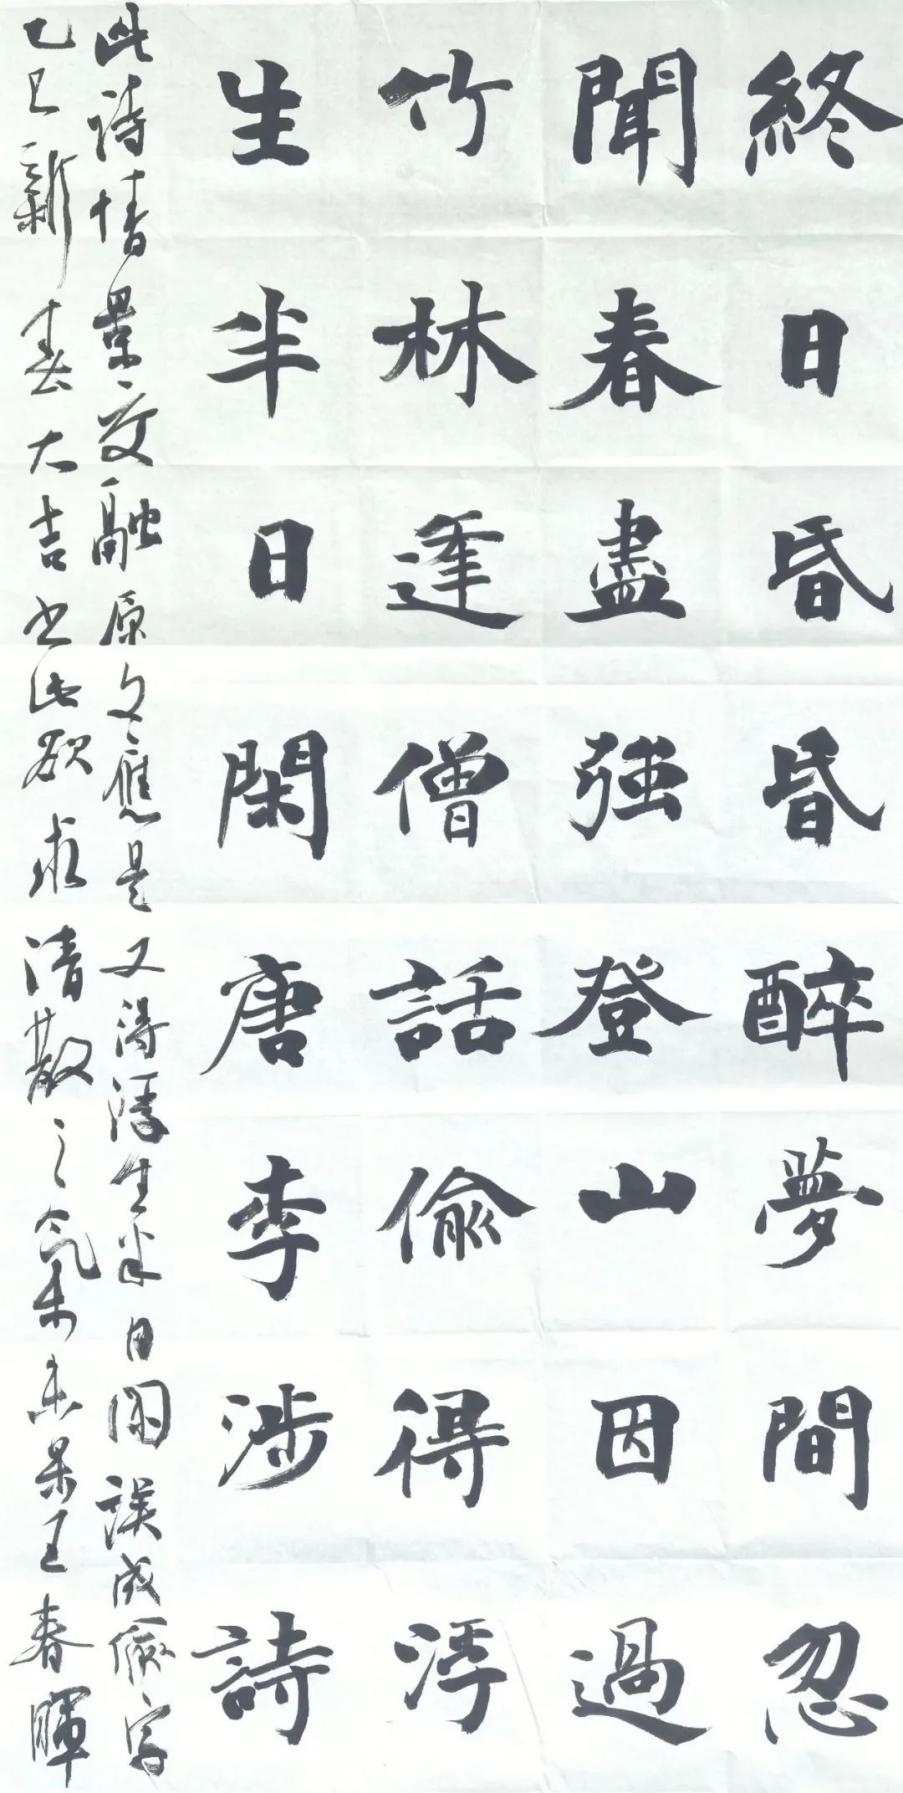 終日昏昏醉夢間忽
聞春盡強登山因過
竹林逢僧話偷得浮
生半日閑唐李涉詩
此詩情景交融原文應是又得浮生半日閑誤成偷字
乙巳新春大吉书此欲求清散之氣未果王春暉